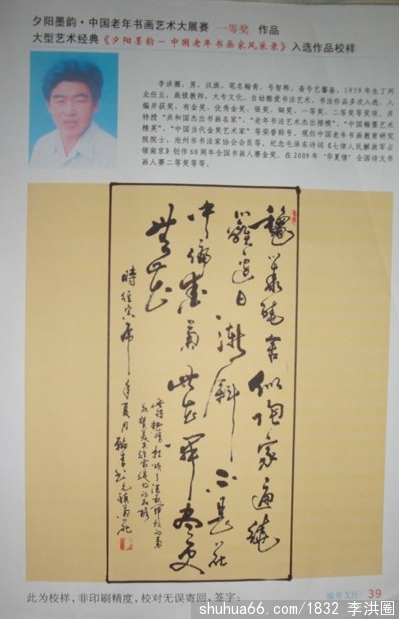 夕阳墨韵·中国老年书画艺术大展赛 一等奖 作品
大型艺术经典《夕阳墨韵－中国老年书画家风采录》入选作品校样
李洪圈，男，汉族，笔名翰青、号智释，斋号艺馨斋，1959年生于河
北任丘，高级教师，大专文化，自幼酷爱书法艺术，书法作品多次入选、入
编并获奖，有金奖、优秀金奖、银奖、铜奖、一等奖、二等奖等奖项，并
特授“共和国杰出书画名家”、“老年书法艺术杰出楷模”、“中国翰墨艺术
精英”、“中国当代金奖艺术家”等荣誉称号。现任中国老年书画教育研究
院院士，沧州市书法家协会会员等。纪念毛泽东诗词《七律人民解放军占
领南京》创作60周年全国书画大赛金奖，在2009年“华夏情”全国诗文书
画大赛二等奖等等。
龝丛绕舍似陶家遍绕
籬邊日漸斜不是花
中偏愛菊此花開盡更
無花
時維寅虎年夏月翰青書元稹菊花
此为校样，非印刷精度，校对无误寄回，签字：
编号XH- 39
shuhua66.com/1832 李洪圈